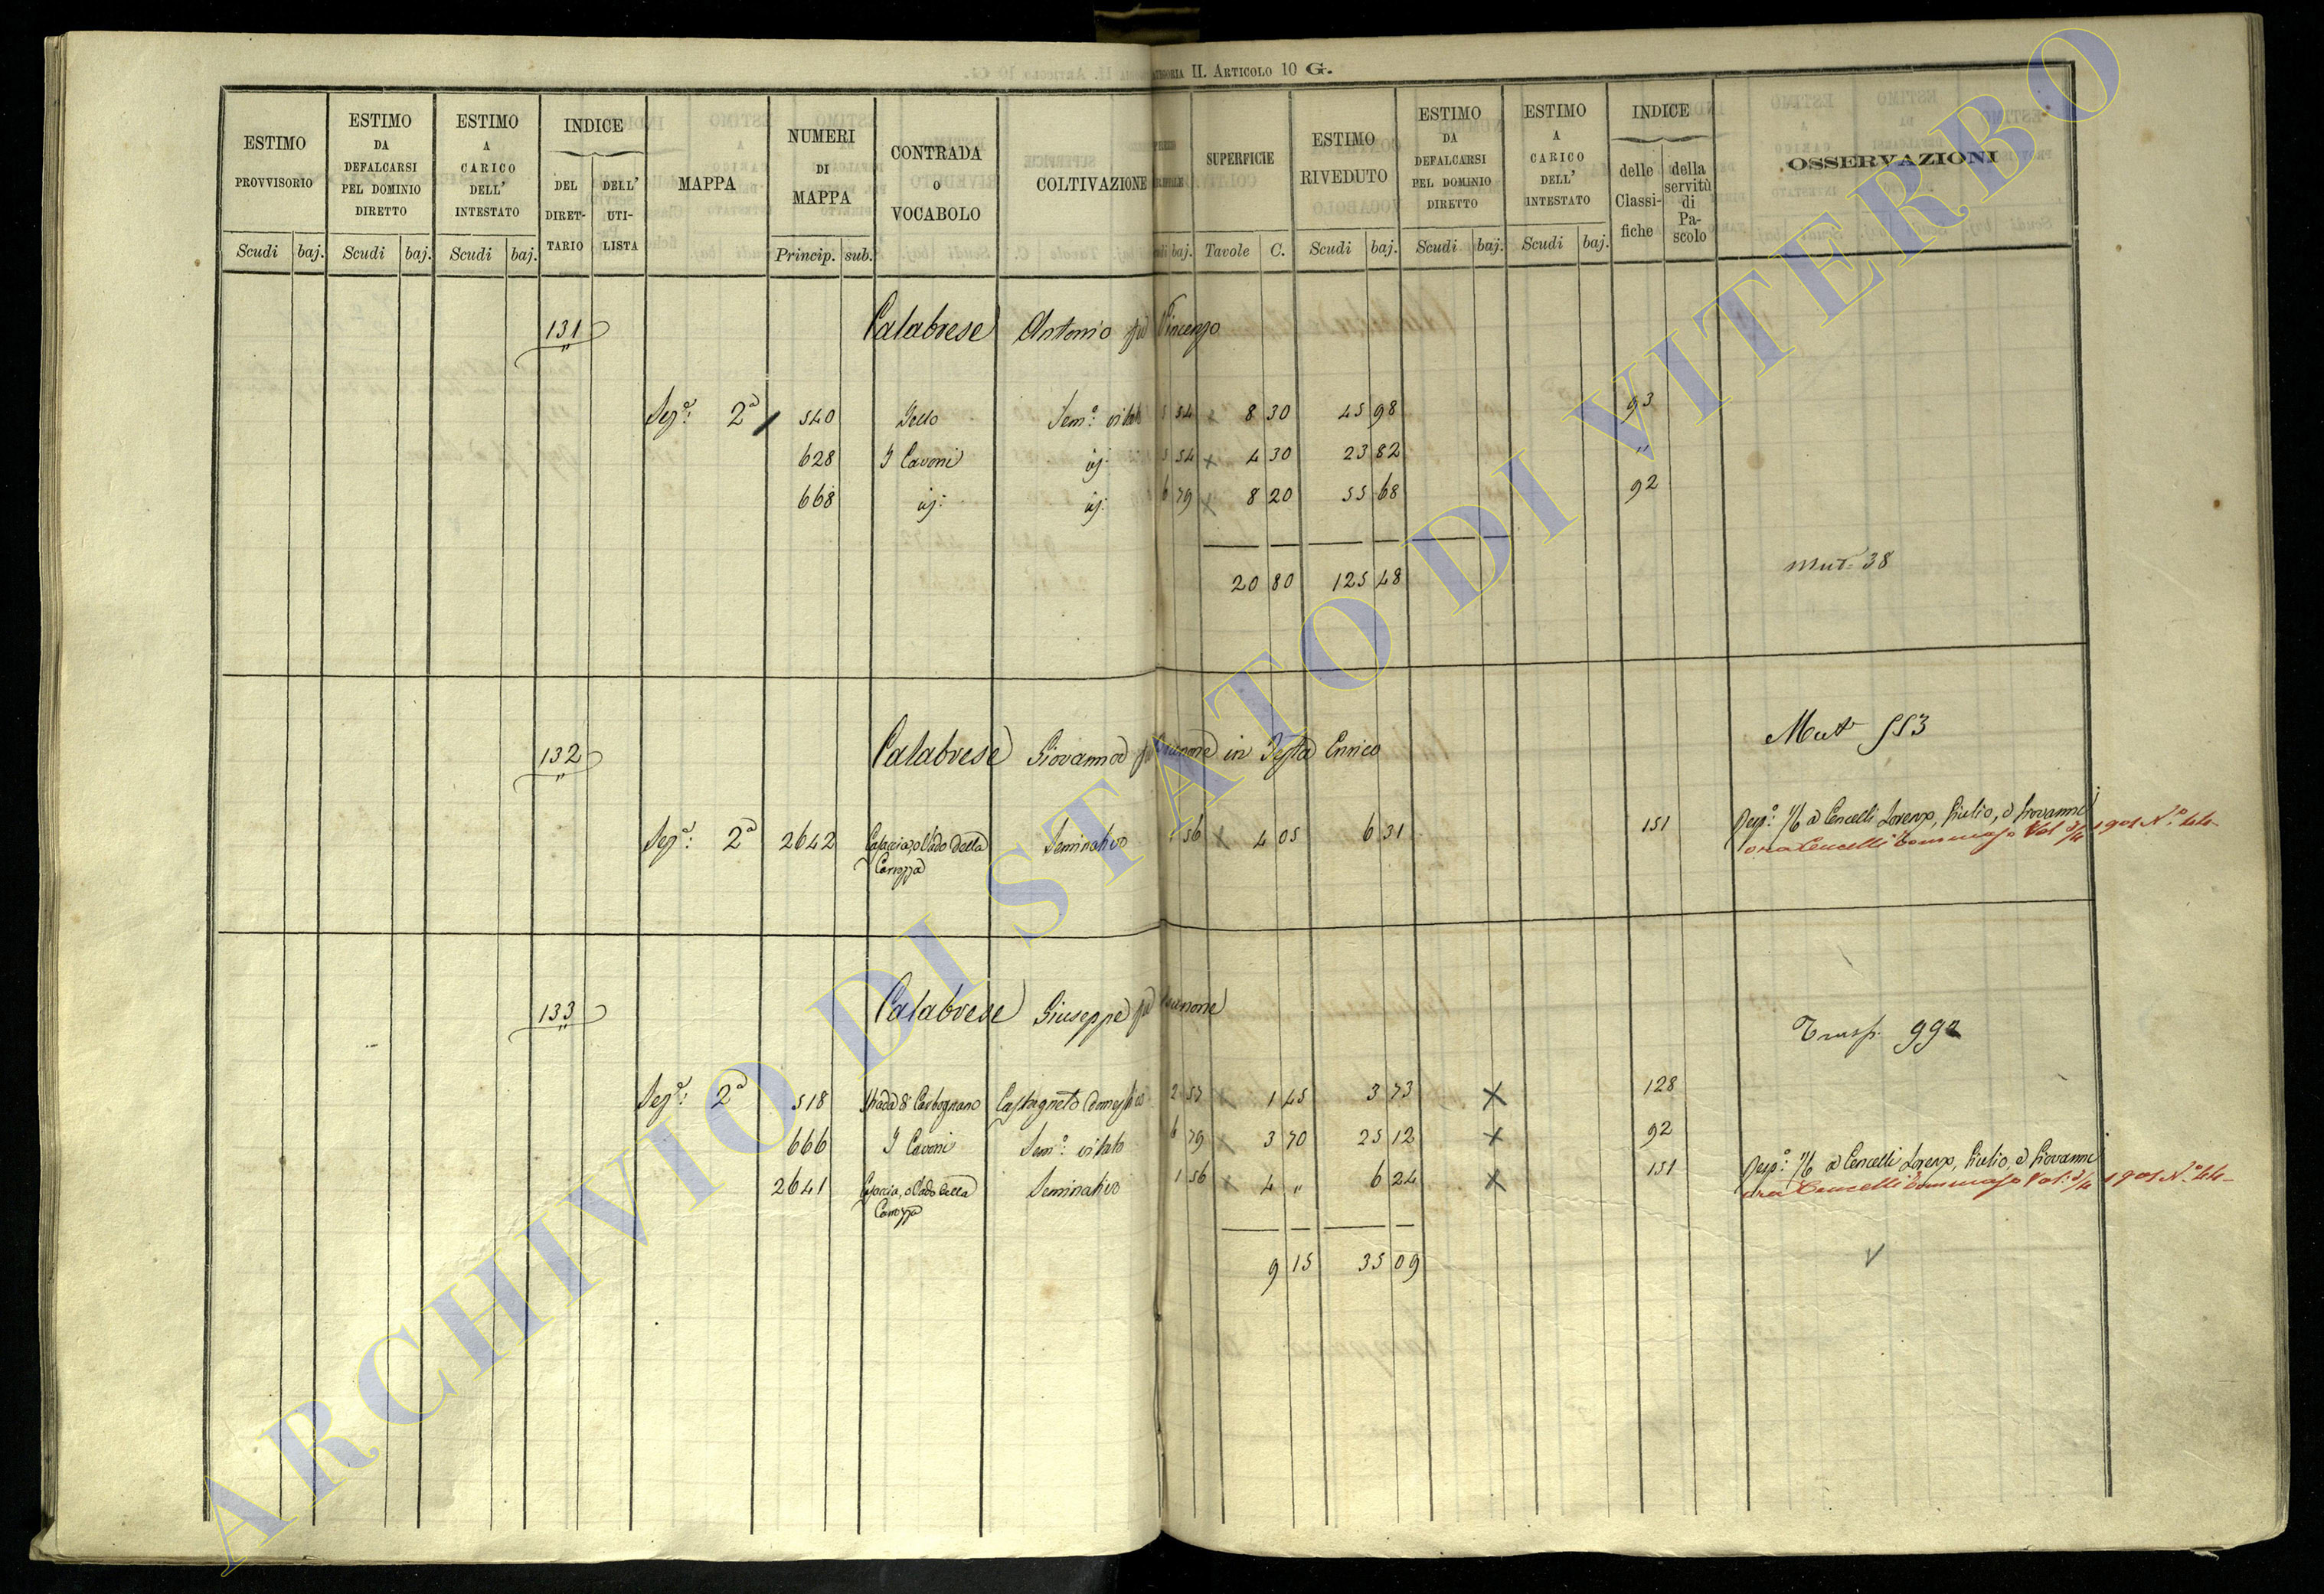 CATEGORIA II. ARTICOLO 10 G.
ESTIMO PROVVISORIO
ESTIMO DA DEFALCARSI PEL DOMINIO DIRETTO
ESTIMO A CARICO DELL' INTESTATO
INDICE
DEL DIRET-TARIO
DELL' UTI-LISTA
MAPPA
NUMERI DI MAPPA
CONTRADA O VOCABOLO
COLTIVAZIONE
SUPERFICIE
ESTIMO RIVEDUTO
ESTIMO DA DEFALCARSI PEL DOMINIO DIRETTO
ESTIMO A CARICO DELL' INTESTATO
INDICE
delle Classi-fiche
della servitù di Pa-scolo
OSSERVAZIONI
Scudi baj. Scudi baj. Scudi baj. Princip. sub. baj. Tavole C. Scudi baj. Scudi baj. Scudi baj.
131 Calabrese Antonio fu Vincenzo
Sez.e: 2a 540 Sem.o: vitato 5 54 x 8 30 45 98 93
628 I Cavoni id: 5 54 x 4 30 23 82 "
668 id: id: 6 79 x 8 20 55 68 92
20 80 125 48 Mut. 38
132 Calabrese Giovanna fu in Testa Enrico Mut 553
Sez.e: 2a 2642 o Vado della Carozza Seminativo 1 56 x 4 05 6 31 151 Resp.o: 1/6 a Cencelli Lorenzo, Giulio, e Giovanni
ora Cencelli Tommaso Vol. 3/4 1901 N.o 44
133 Calabrese Giuseppe fu Trasp. 992
Sez.e: 2a 518 Strada di Carbognano Castagneto domestico 2 57 x 1 45 3 73 x 128
666 I Cavoni Sem.o: vitato 6 79 x 3 70 25 12 x 92
2641 o Vado della Carozza Seminativo 1 56 x 4 " 6 24 x 151 Resp.o: 1/6 a Cencelli Lorenzo, Giulio, e Giovanni
ora Cencelli Tommaso Vol. 3/4 1901 N.o 44
9 15 35 09
ARCHIVIO DI STATO DI VITERBO